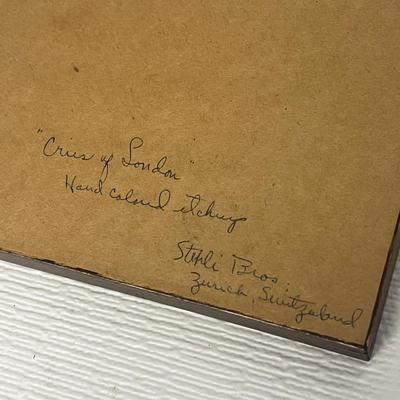 "Cries of London"
Hand colored etchings
Stehli Bros.
Zurich, Switzerland